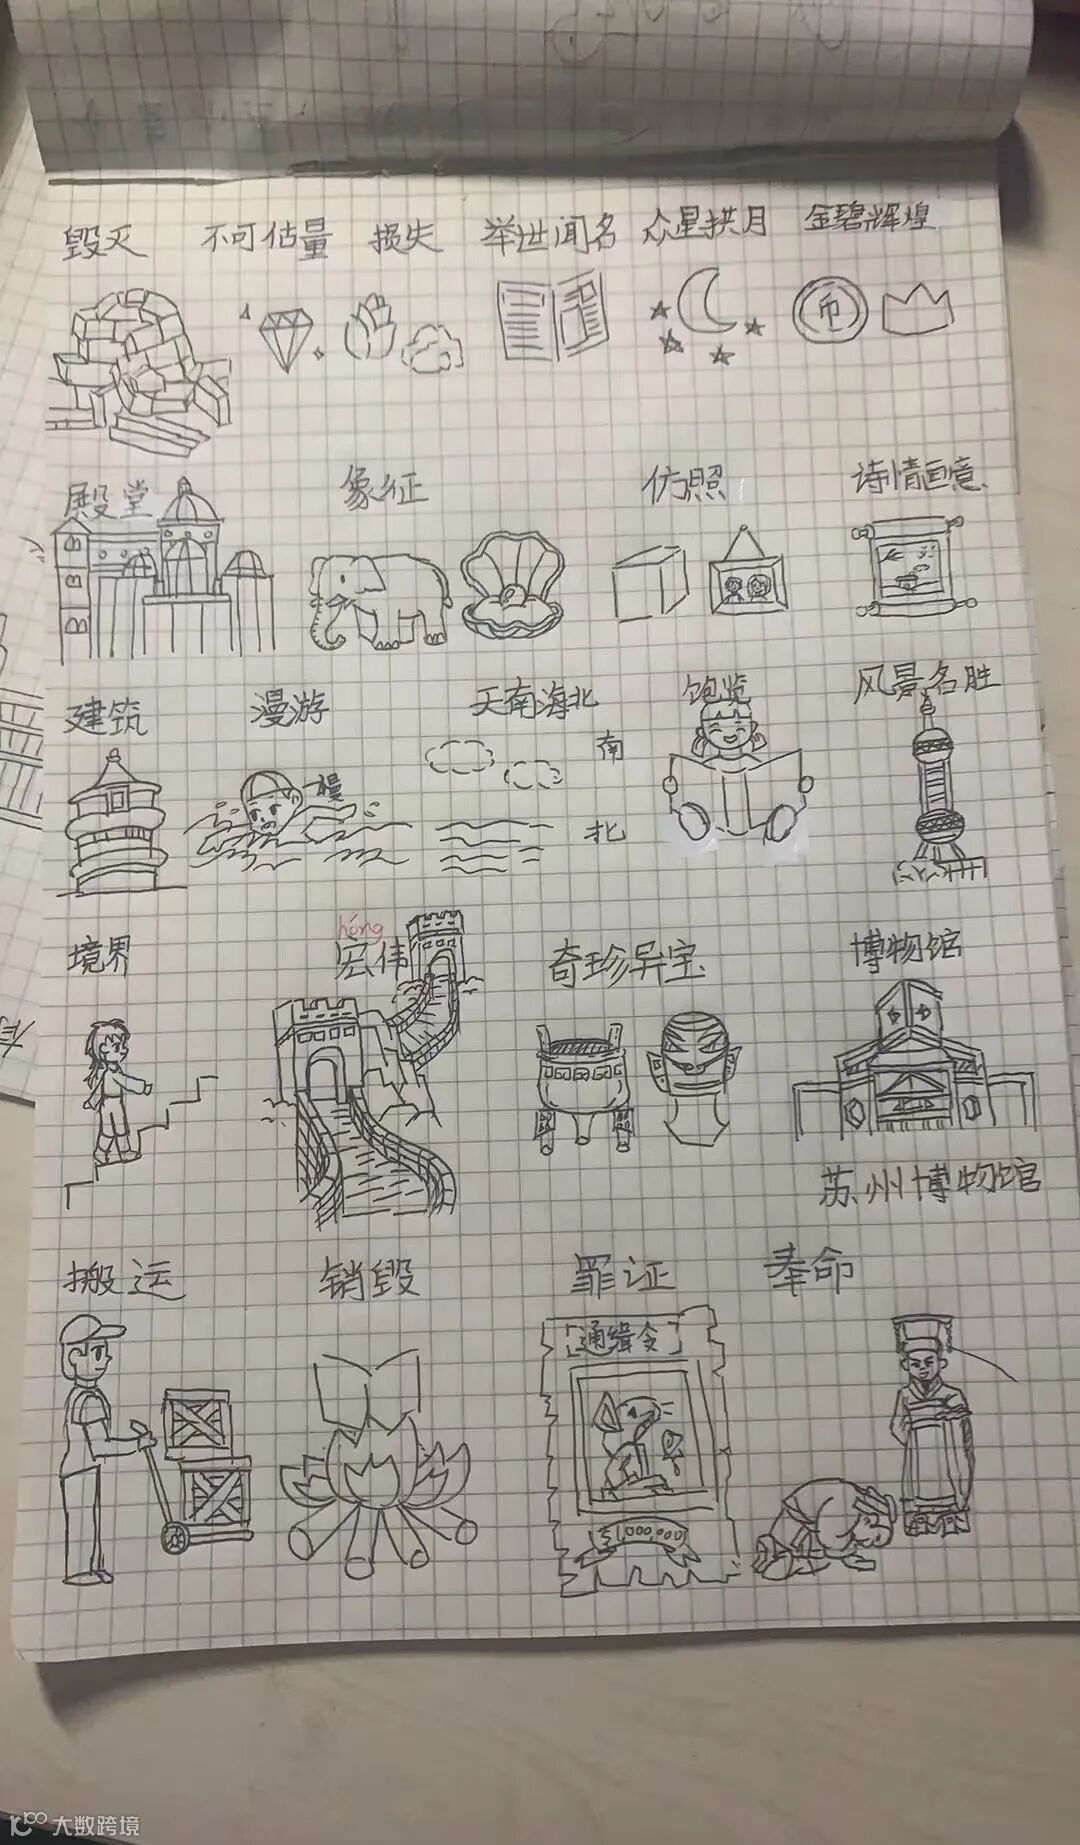 毁灭 不可估量 损失 举世闻名 众星拱月 金碧辉煌
币
殿堂 象征 仿照 诗情画意
建筑 漫游 天南海北 饱览 风景名胜
南
慢
北
境界 宏伟 奇珍异宝 博物馆
hóng
苏州博物馆
搬运 销毁 罪证 奉命
通缉令
大数跨境